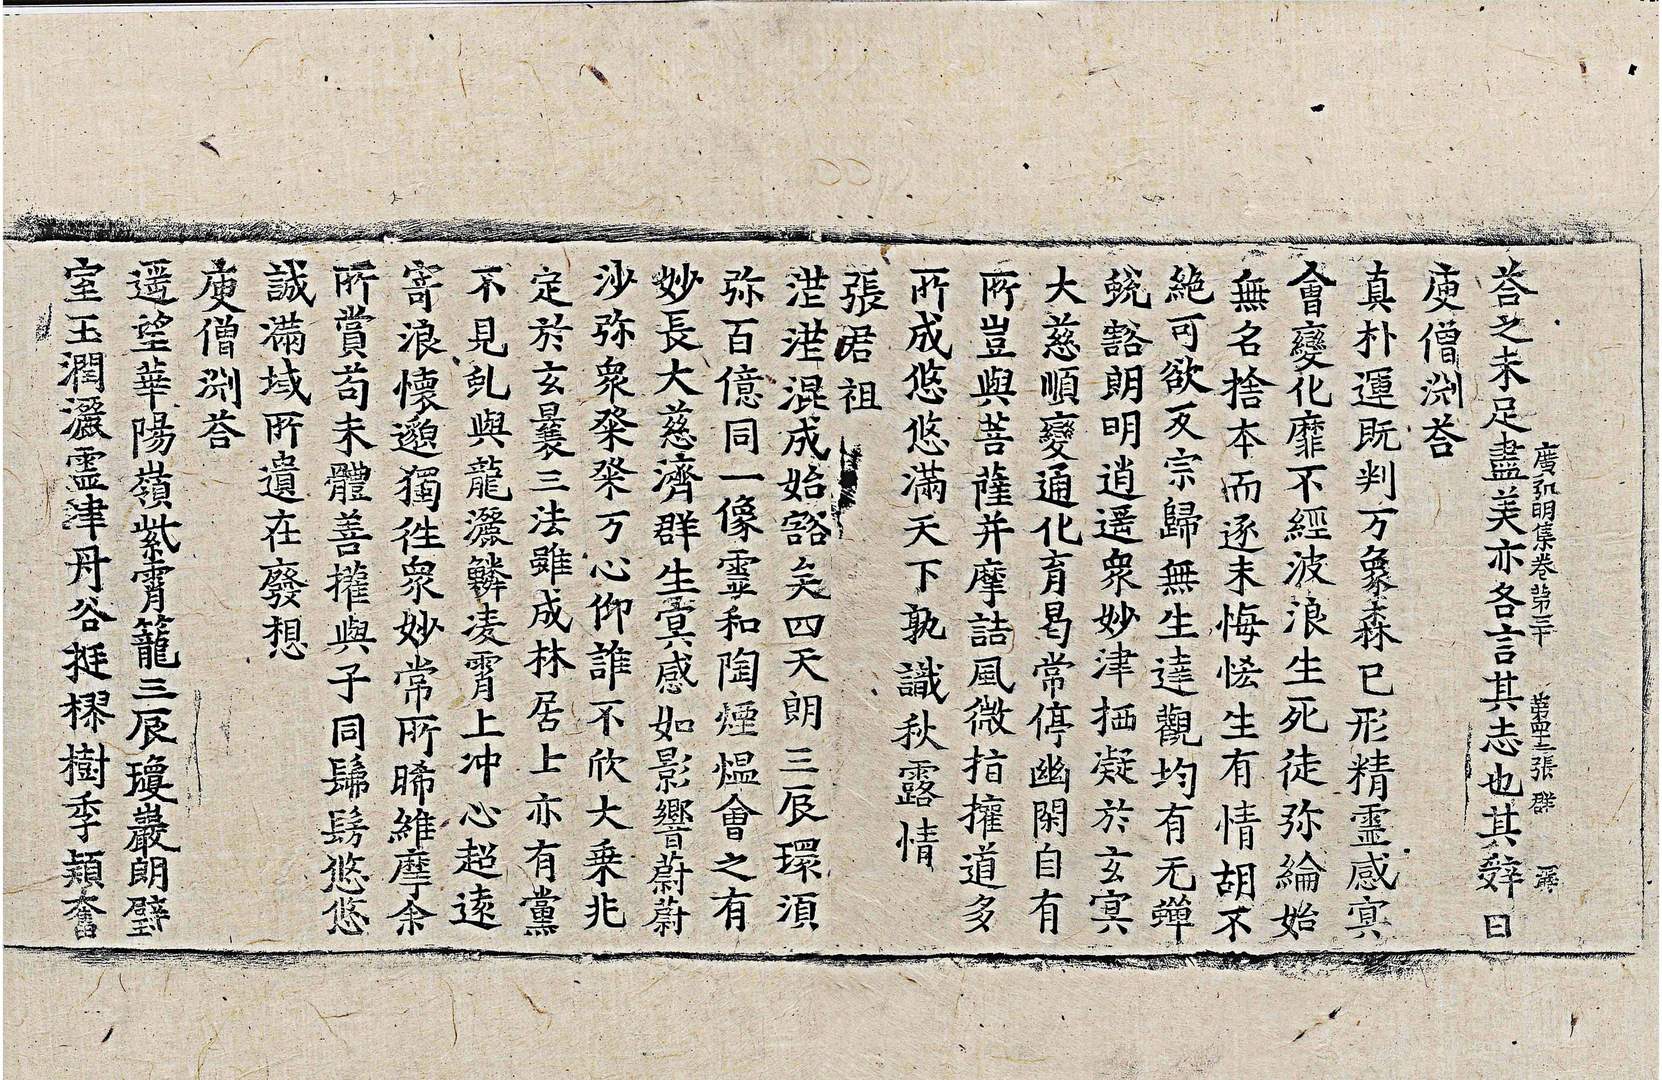 荅之未足盡美亦各言其志也其辤曰
廣弘明集卷第三十 第四十三張 群
庾僧渊荅
真朴運既判万象森已形精靈感寘
會變化靡不經波浪生死徒弥綸始
無名捨本而逐末悔悋生有情胡不
絶可欲反宗歸無生達觀均有无蟬
蛻豁朗明逍遥衆妙津栖凝於玄寘
大慈順變通化育曷常停幽閑自有
所豈與菩薩并摩詰風微指攉道多
所成悠悠滿天下孰識秋露情
張君祖
茫茫混成始豁矣四天朗三辰環湏
弥百億同一像霊和陶煙熅會之有
妙長大慈濟群生寘感如影響蔚蔚
沙弥衆粲粲万心仰誰不欣大乗兆
定於玄曩三法雖成林居士亦有黨
不見虬與龍灑鱗凌霄上冲心超逺
寄浪懷邈獨徃衆妙常所晞維摩余
所賞苟未體善攉與子同髴髣悠悠
誠滿域所遺在廢想
庾僧渊荅
遥望華陽嶺紫霄籠三辰瓊巖朗璧
室玉潤灑靈津丹谷挺樛樹季穎奮